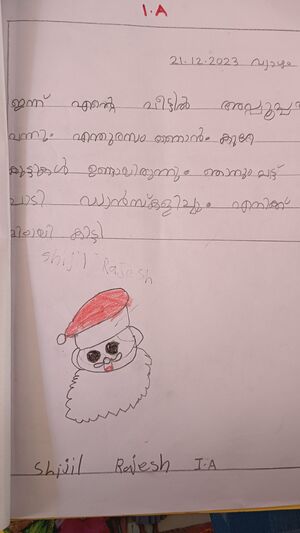 I.A
21.12.2023 വ്യാഴം
ഇന്ന് എന്റെ വീട്ടിൽ അപ്പൂപ്പൻ
വന്നു. എന്തുരസം ഞാൻ. കുറേ
കുട്ടികൾ ഉണ്ടായിരുന്നു. ഞാനും പാട്ട്
പാടി ഡാൻസ്കളിച്ചും എനിക്ക്
മിഠായി കിട്ടി
Shijil Rajesh
Shijil Rajesh I.A